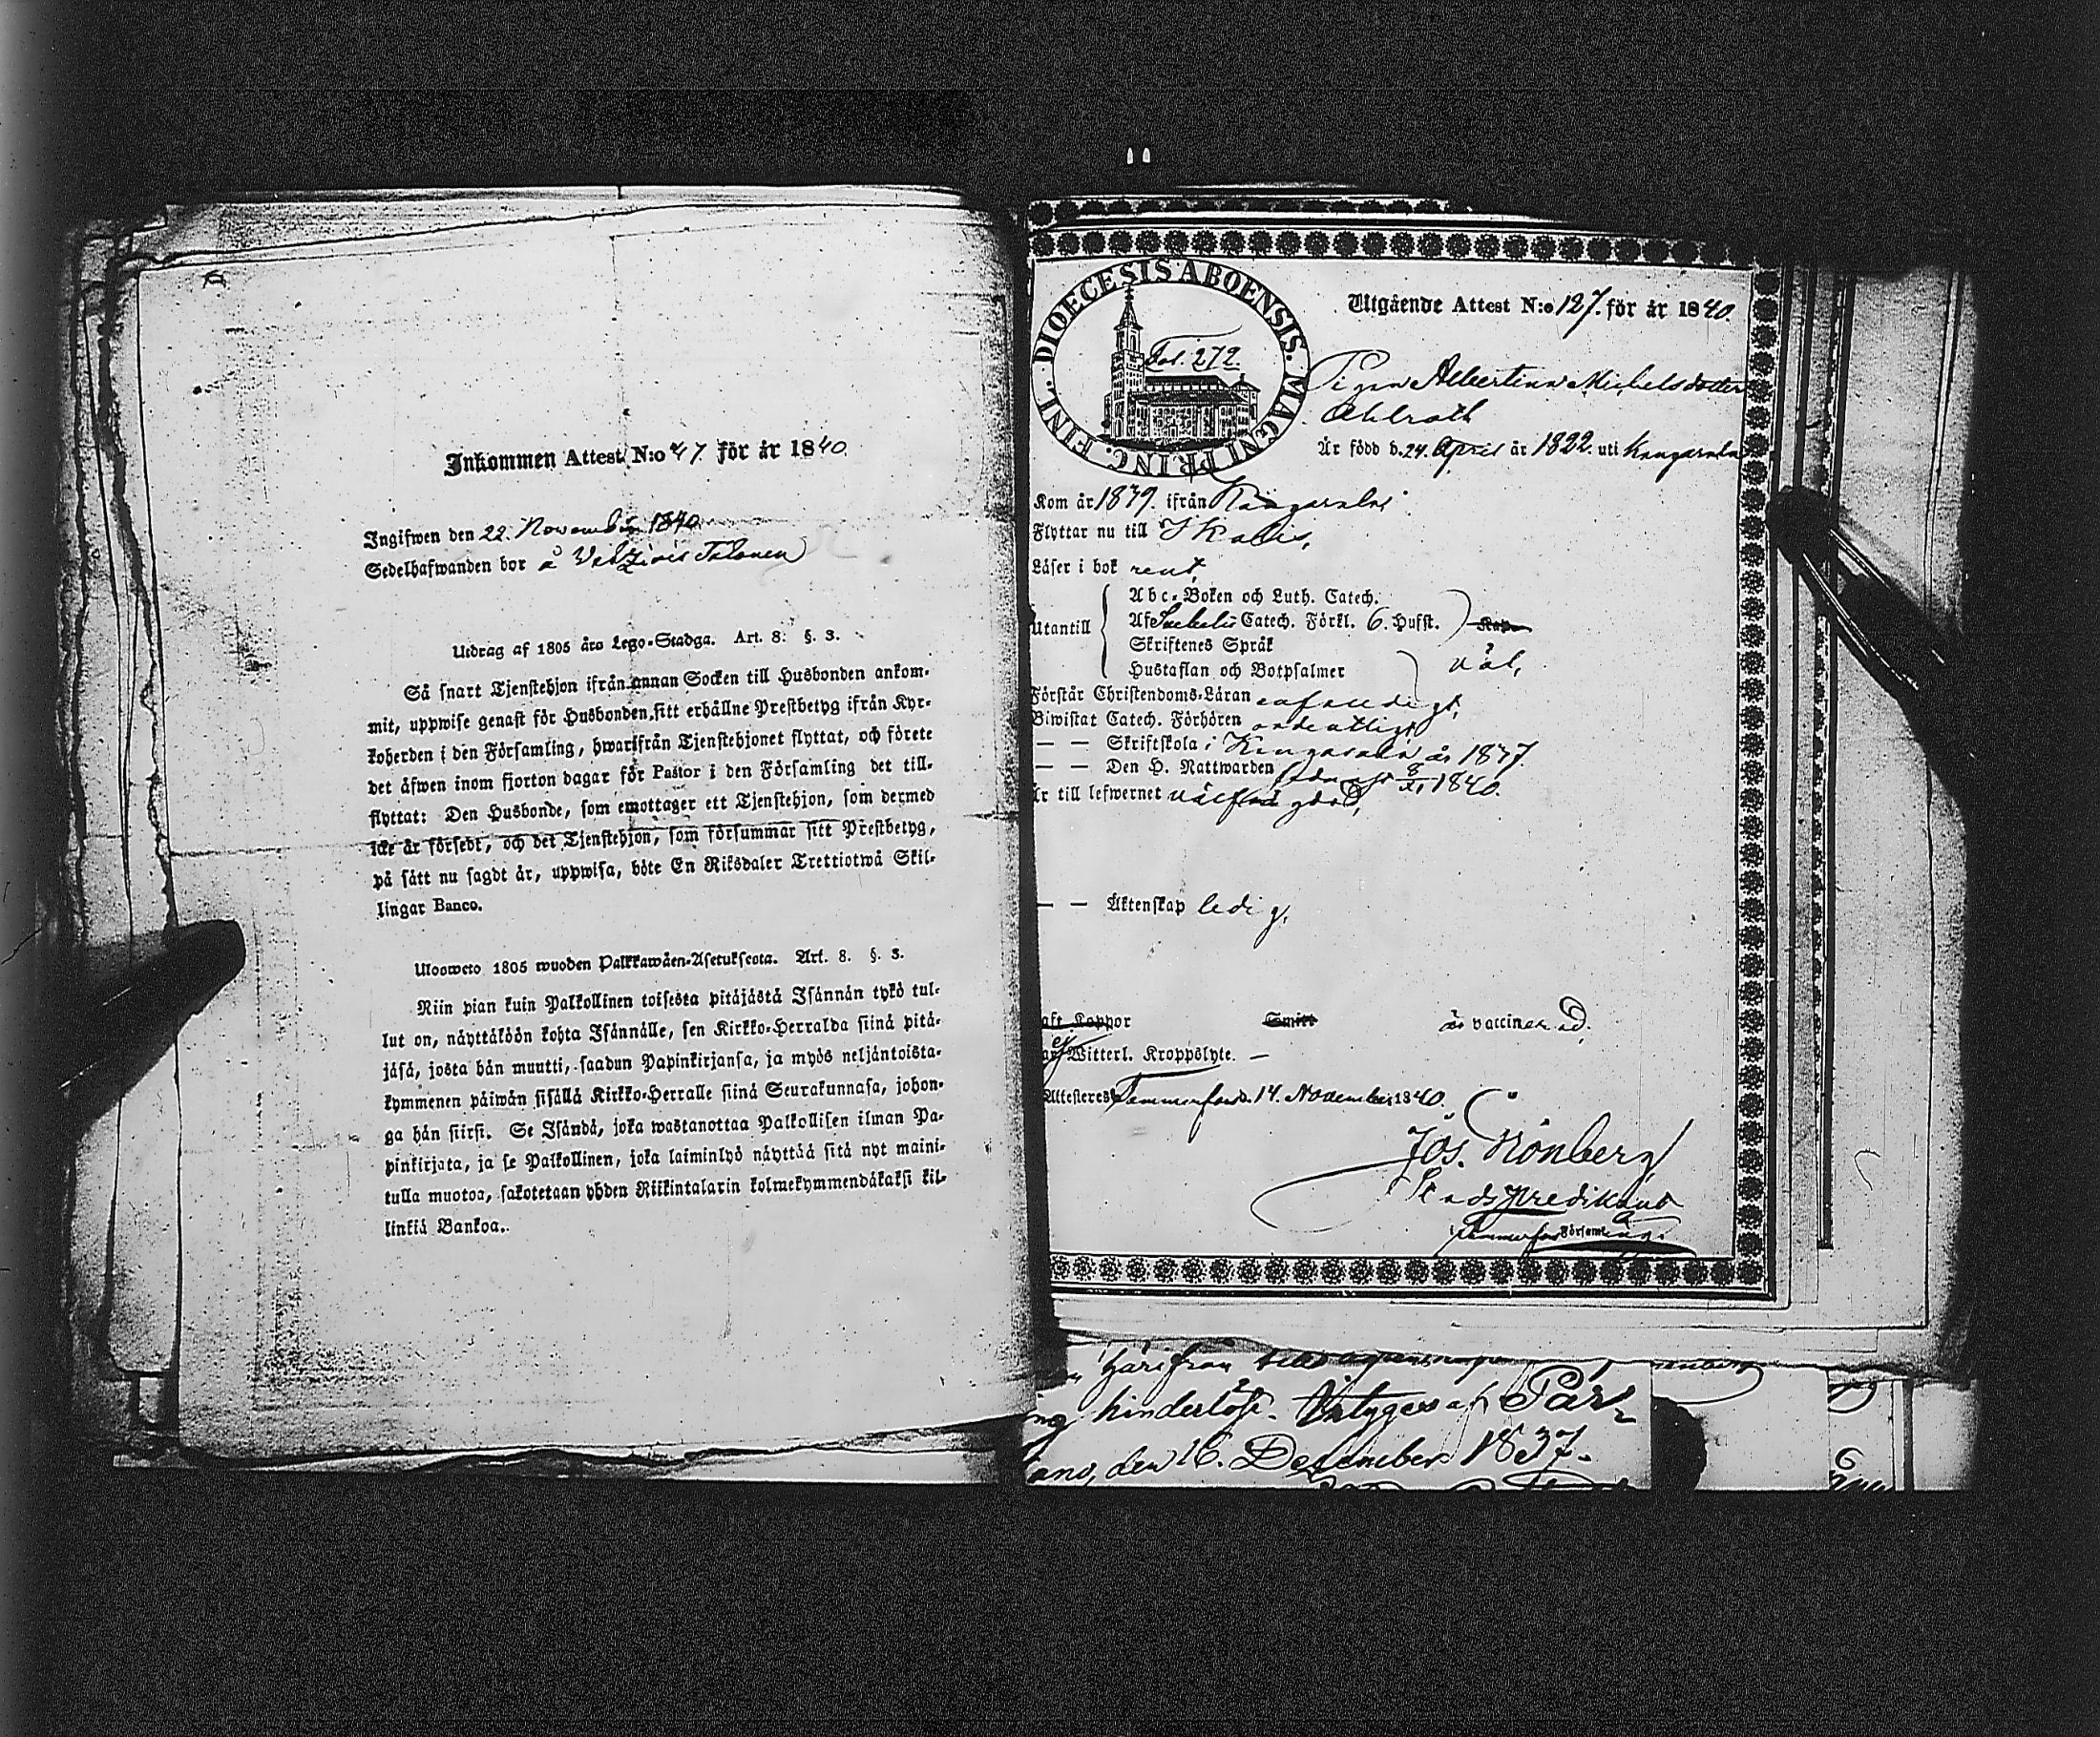 Inkommen Attest N:o 47 för år 1840.
Ingifwen den 22. November 1840
Sedelhafwanden bor å
Utdrag af 1805 års Lego-Stadga. Art. 8. §. 3.
Så snart Tjenstehjon ifrån annan Socken till Husbonden ankom-
mit, uppwise genast för Husbonden sitt erhållne Prestbetyg ifrån Kyr-
koherden i den Församling, hwarifrån Tjenstehjonet flyttat, och förete
det åfwen inom fjorton dagar för Pastor i den Församling det till-
flyttat: Den Husbonde, som emottager ett Tjenstehjon, som dermed
icke år försedt, och det Tjenstehjon, som försummar sitt Prestbetyg,
på sått nu sagdt år, uppwisa, böte En Riksdaler Trettiotwå Skil-
lingar Banco.
Ulosweto 1805 wuoden Palkkawåen-Asetuksesta. Art. 8. §. 3.
Niin pian kuin Palkollinen toisesta pitåjåstå Isånnån tykö tul-
lut on, nåyttåköön kohta Isånnålle, sen Kirkko-Herralda siinå pitå-
jåså, josta hån muutti, saadun Papinkirjansa, ja myös neljåntoista-
kymmenen påiwån sisållå Kirkko-Herralle siinå Seurakunnasa, johon-
ga hån siirsi. Se Isåndå, joka wastanottaa Palkollisen ilman Pa-
pinkirjata, ja se Palkollinen, joka laiminlyö nåyttåå sitå nyt maini-
tulla muotoa, sakotetaan yhden Riikintalarin kolmekymmendåkaksi kil-
linkiå Bankoa.
DIOECESIS ABOENSIS. MAGNI PRINC. FINL.
Fol. 272.
Utgående Attest N:o 127. för år 1840.
Pigan Albertina Michelsdotter
Ahlroth
Är född d. 24. April år 1822. uti Kangasala
Kom år 1839. ifrån Kangasala
Flyttar nu till Ikalis,
Låser i bok rent,
Utantill
Abc-Boken och Luth. Catech.
Af Svebelii Catech. Förkl. 6. Hufst.
Skriftenes Språk
Hustaflan och Botpsalmer
väl,
Förstår Christendoms-Låran
Biwistat Catech. Förhören ordentligt
— — Skriftskola i Kangasala år 1837
— — Den H. Nattwarden sedn. g. 8/11 1840.
Är till lefwernet
— — Äktenskap ledig,
aft Koppor Smitt är vaccinerad.
ej Witterl. Kroppslyte. —
Attesteres Tammerfors d. 14. November 1840.
Jos. Grönberg
Stads Predikant
i Tammerfors Församling.
härifrån
hinderlöst. Intygas af Par-
den 16. December 1837.